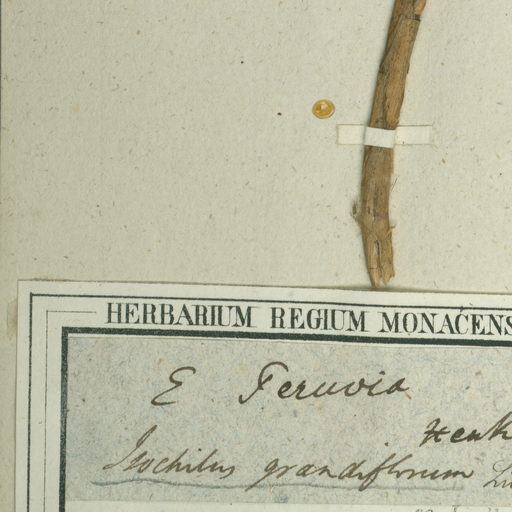 HERBARIUM REGIUM MONACENS
E Peruvia
Henk
Isochilus grandiflorum